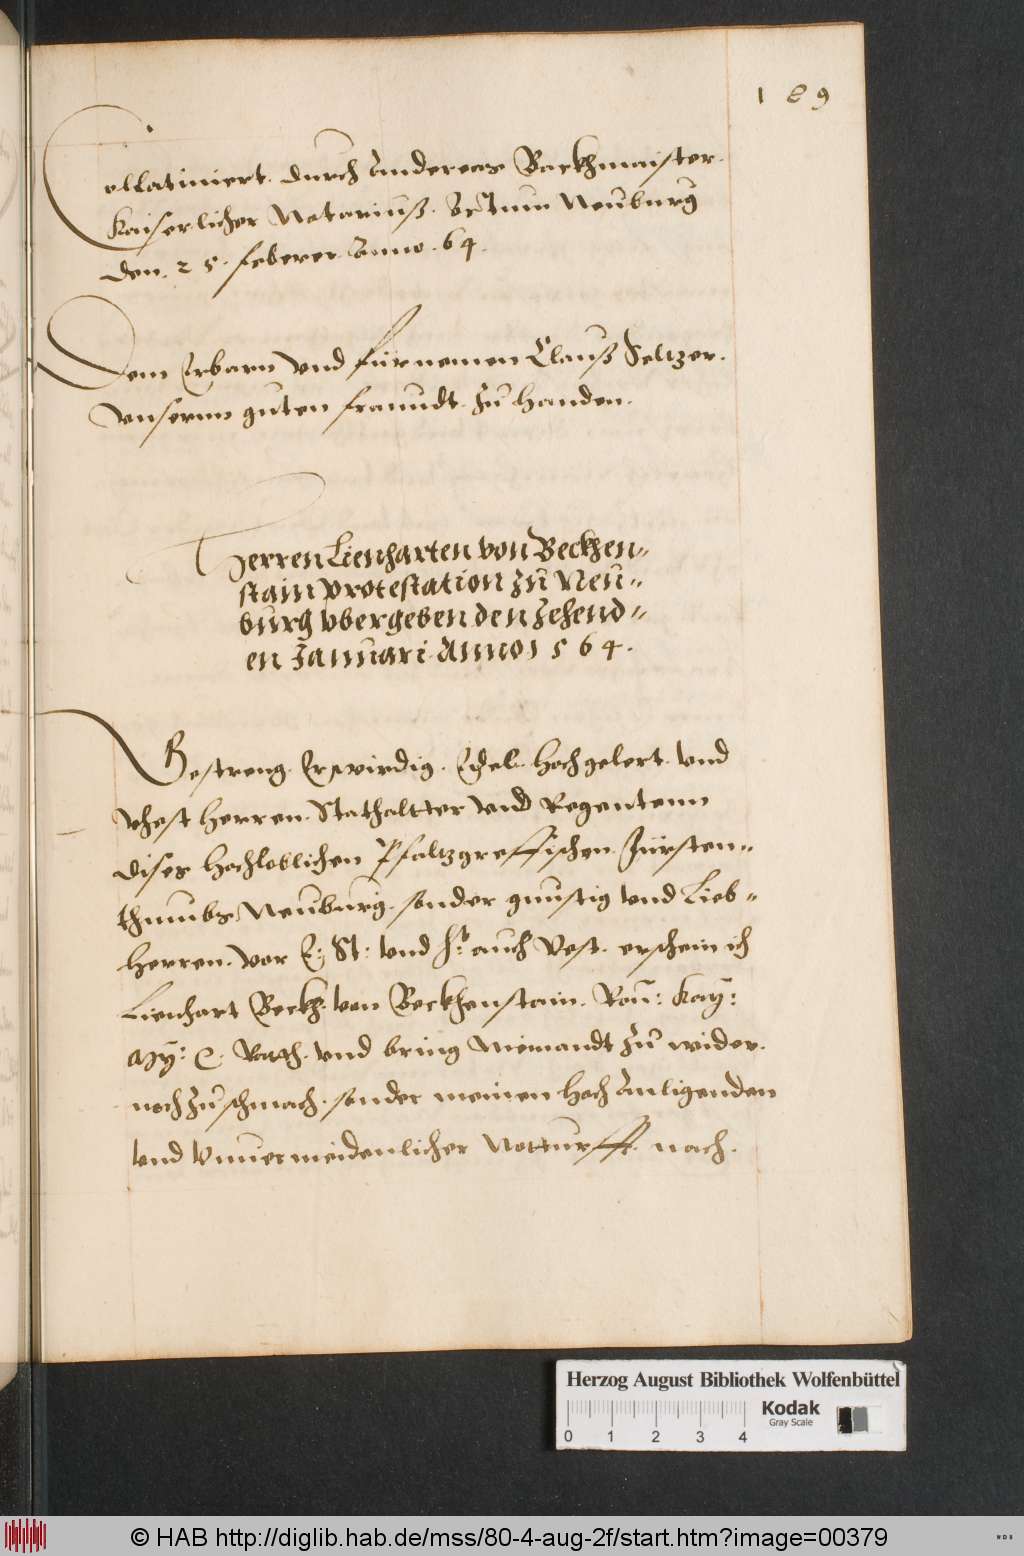 189
Collationiert. durch Andereas Backhmaister.
Kaiserlicher Notariuß. Actum Neuburg
den. 25. feberer. Anno. 64.
Dem Erbarn vnd fürnemen Clauß Seltzer.
vnserm guten freundt. zu handen.
Herren Lienharten von Beckhen„
stain protestation zu Neu„
burg vbergeben den zehend„
en Januari Anno 1564.
Gestreng. Erwirdig. Edel. hochgelert. vnd
vhest herren. Stathaltter vnd Regentenn
dises hochloblichen Pfaltzgreffischen Fürsten„
thumbs Neuburg. sonder gunstig vnd Lieb„
herren. vor E: St: vnd auch Vest. erschein ich
Lienhart Beckh. von Beckhenstain. Röm: Kay:
My: Rath. vnd bring Niemandt zu wider.
noch zu schmach. sonder meinen hoch Anligenden
vnd Vnuermeidenlicher Notturfft. nach.
Herzog August Bibliothek Wolfenbüttel
Kodak
Gray Scale
0 1 2 3 4
© HAB http://diglib.hab.de/mss/80-4-aug-2f/start.htm?image=00379